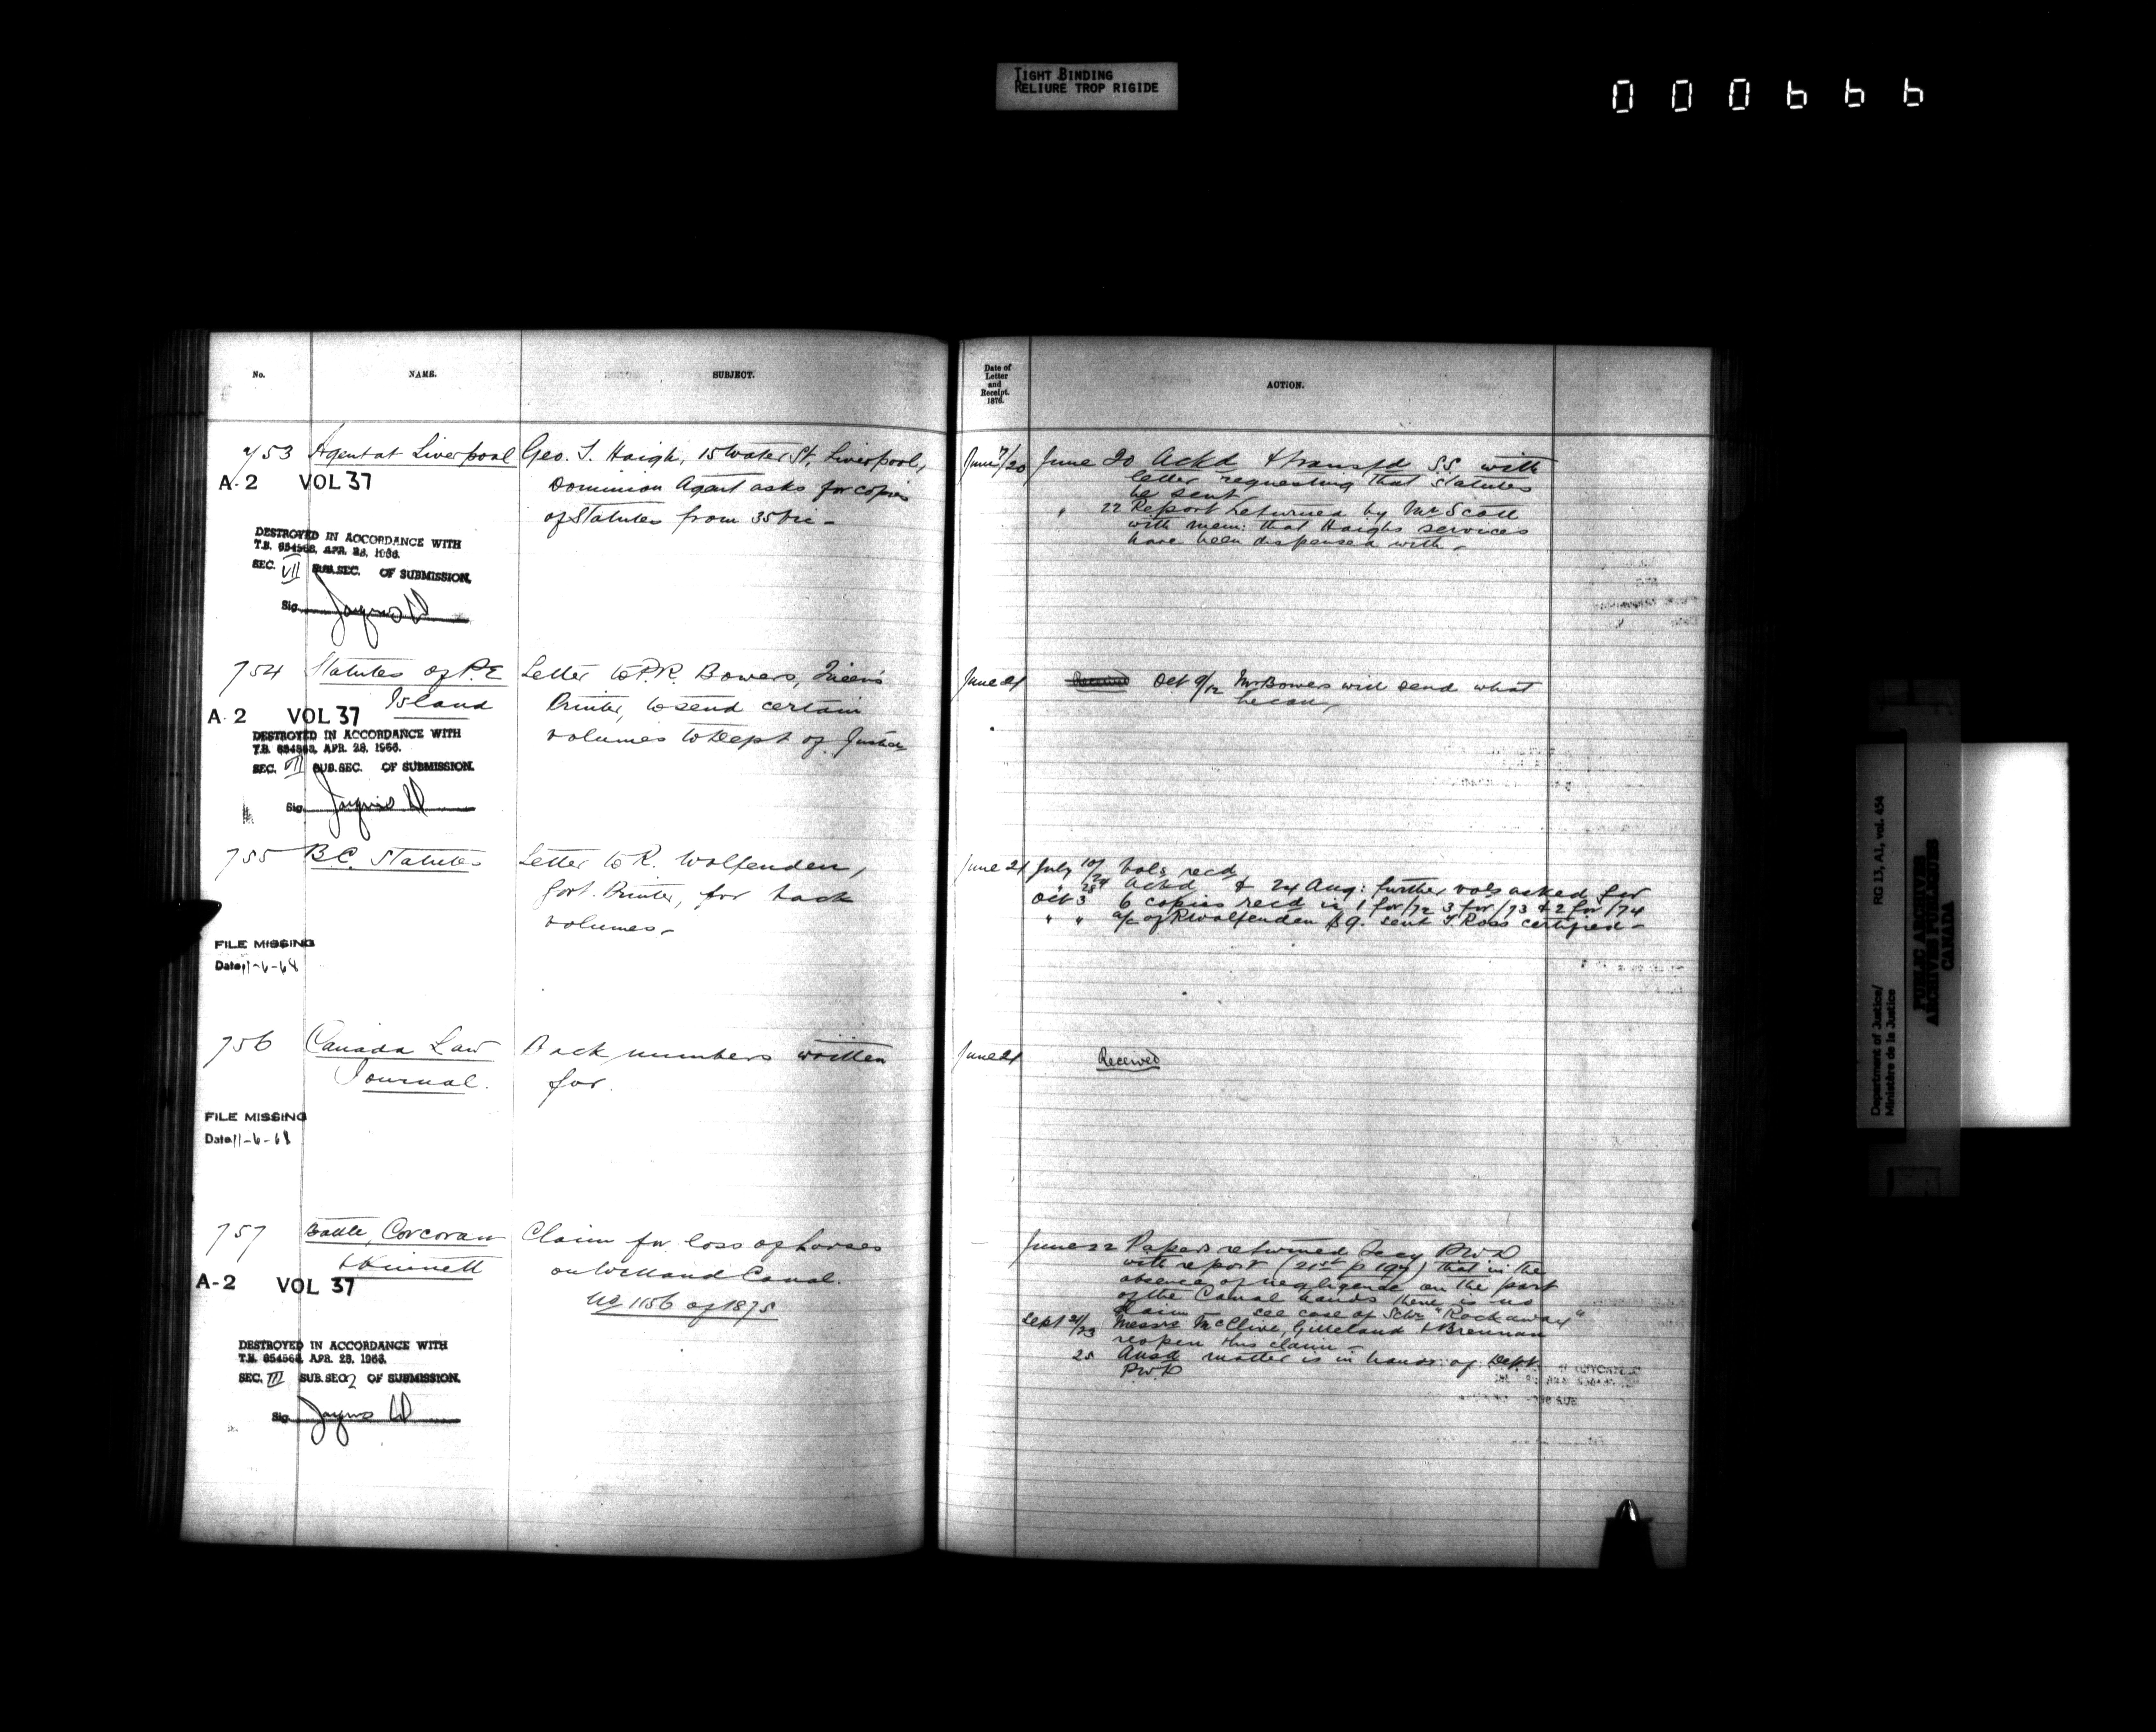 TIGHT BINDING
RELIURE TROP RIGIDE
000666
No.
NAME.
SUBJECT.
753
Agent at Liverpool
Geo. T. Haigh, 15 Water St, Liverpool,
Dominion Agent asks for copies
of Statutes from 35 Vic -
A-2 VOL 37
DESTROYED IN ACCORDANCE WITH
T.B. 654568, APR. 28, 1966.
SEC. VII SUB.SEC. OF SUBMISSION.
Sig.
754
Statutes of P.E
Island
Letter to P.R. Bowers, Queen's
Printer, to send certain
volumes to Dept of Justice
A-2 VOL 37
DESTROYED IN ACCORDANCE WITH
T.B. 654568, APR. 28, 1966.
SEC. VII SUB.SEC. OF SUBMISSION.
Sig.
755
B.C. Statutes
Letter to R. Wolfenden,
Govt. Printer, for back
volumes -
FILE MISSING
Date 11-6-68
756
Canada Law
Journal.
Back numbers written
for.
FILE MISSING
Date 11-6-68
757
Battle, Corcoran
&
Claim for loss of horses
on Welland Canal.
No 1156 of 1875
A-2 VOL 37
DESTROYED IN ACCORDANCE WITH
T.B. 654568, APR. 28, 1966.
SEC. III SUB.SEC. 2 OF SUBMISSION.
Sig.
Date of
Letter
and
Receipt.
1876.
ACTION.
June 7/20
June 20 Ackd & transfd S.S. with
letter requesting that Statutes
be sent
" 22 Report returned by Mr Scott
with mem: that Haighs services
have been dispensed with -
June 21
Received Oct 9/12 Mr Bowers will send what
he can
June 21
July 10/24 Vols recd
" 28 Ackd & 24 Aug: further vols asked for
Oct 3 6 copies recd is 1 for /72 3 for /73 & 2 for /74
" " a/c of R Wolfenden $9. sent T Ross certified -
June 21
Received
June 22 Papers returned Secy P.W.D
with report (21st p 197) that in the
absence of negligence on the part
of the Canal hands there is no
claim - see case of Schr "Rockaway"
Sept 21/23 Messrs McClive, Gilleland & Brennan
reopen this claim -
25 Ansd matter is in hands of Dept
P.W.D
Department of Justice/
Ministère de la Justice
RG 13, A1, vol. 454
PUBLIC ARCHIVES
ARCHIVES PUBLIQUES
CANADA